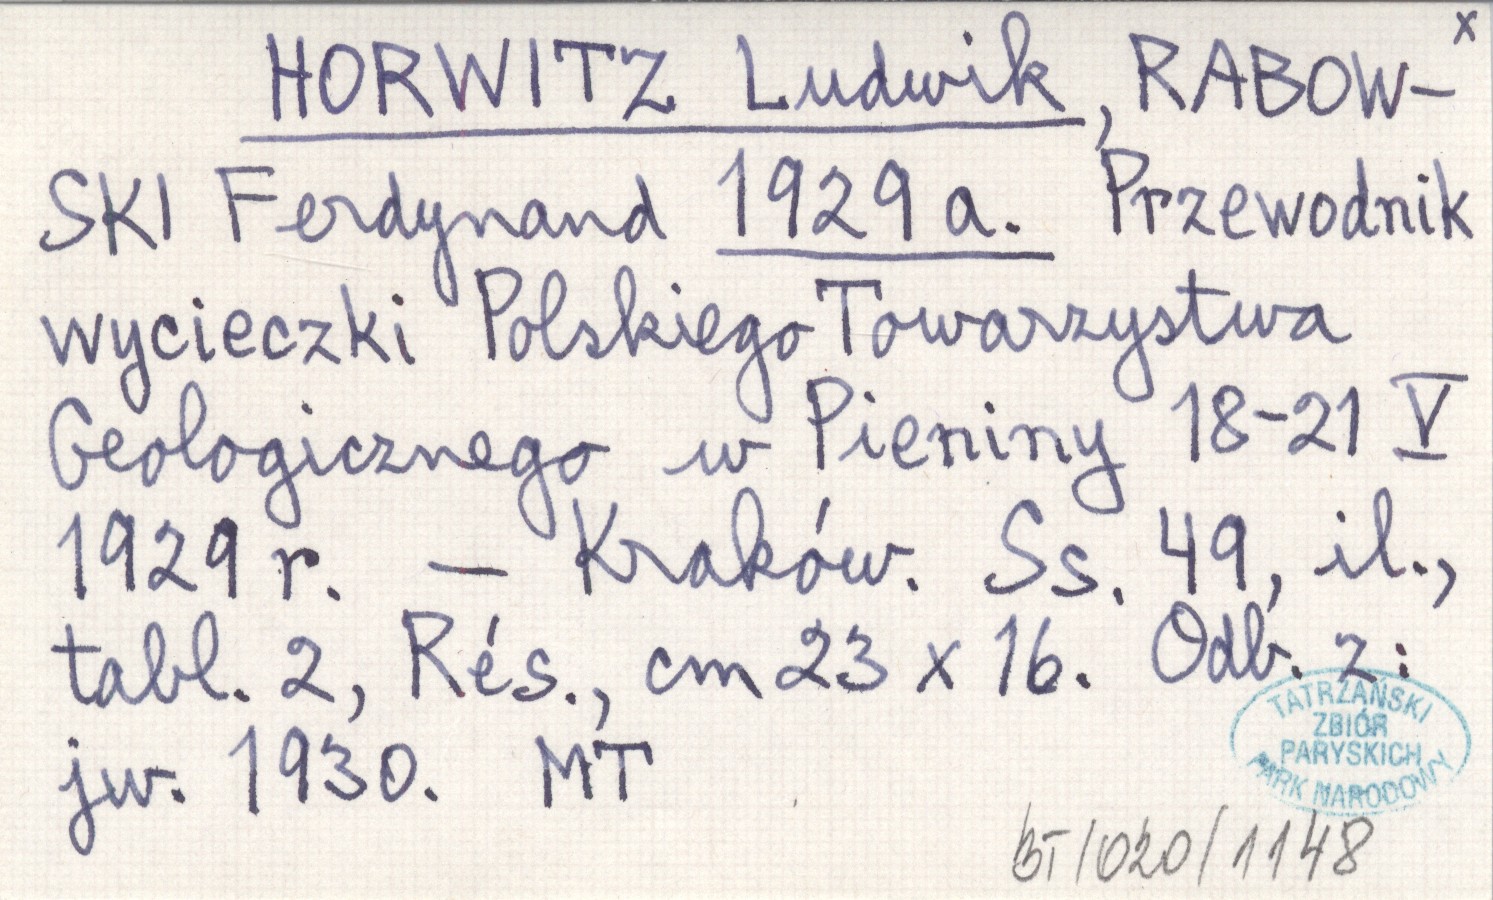 x
HORWITZ Ludwik, RABOW-
SKI Ferdynand 1929 a. Przewodnik
wycieczki Polskiego Towarzystwa
Geologicznego w Pieniny 18-21 V
1929 r. — Kraków. Ss. 49, il.,
tabl. 2, Rés., cm 23 x 16. Odb. z:
jw. 1930. MT
TATRZAŃSKI
ZBIÓR
PARYSKICH
PARK NARODOWY
BT/020/1148